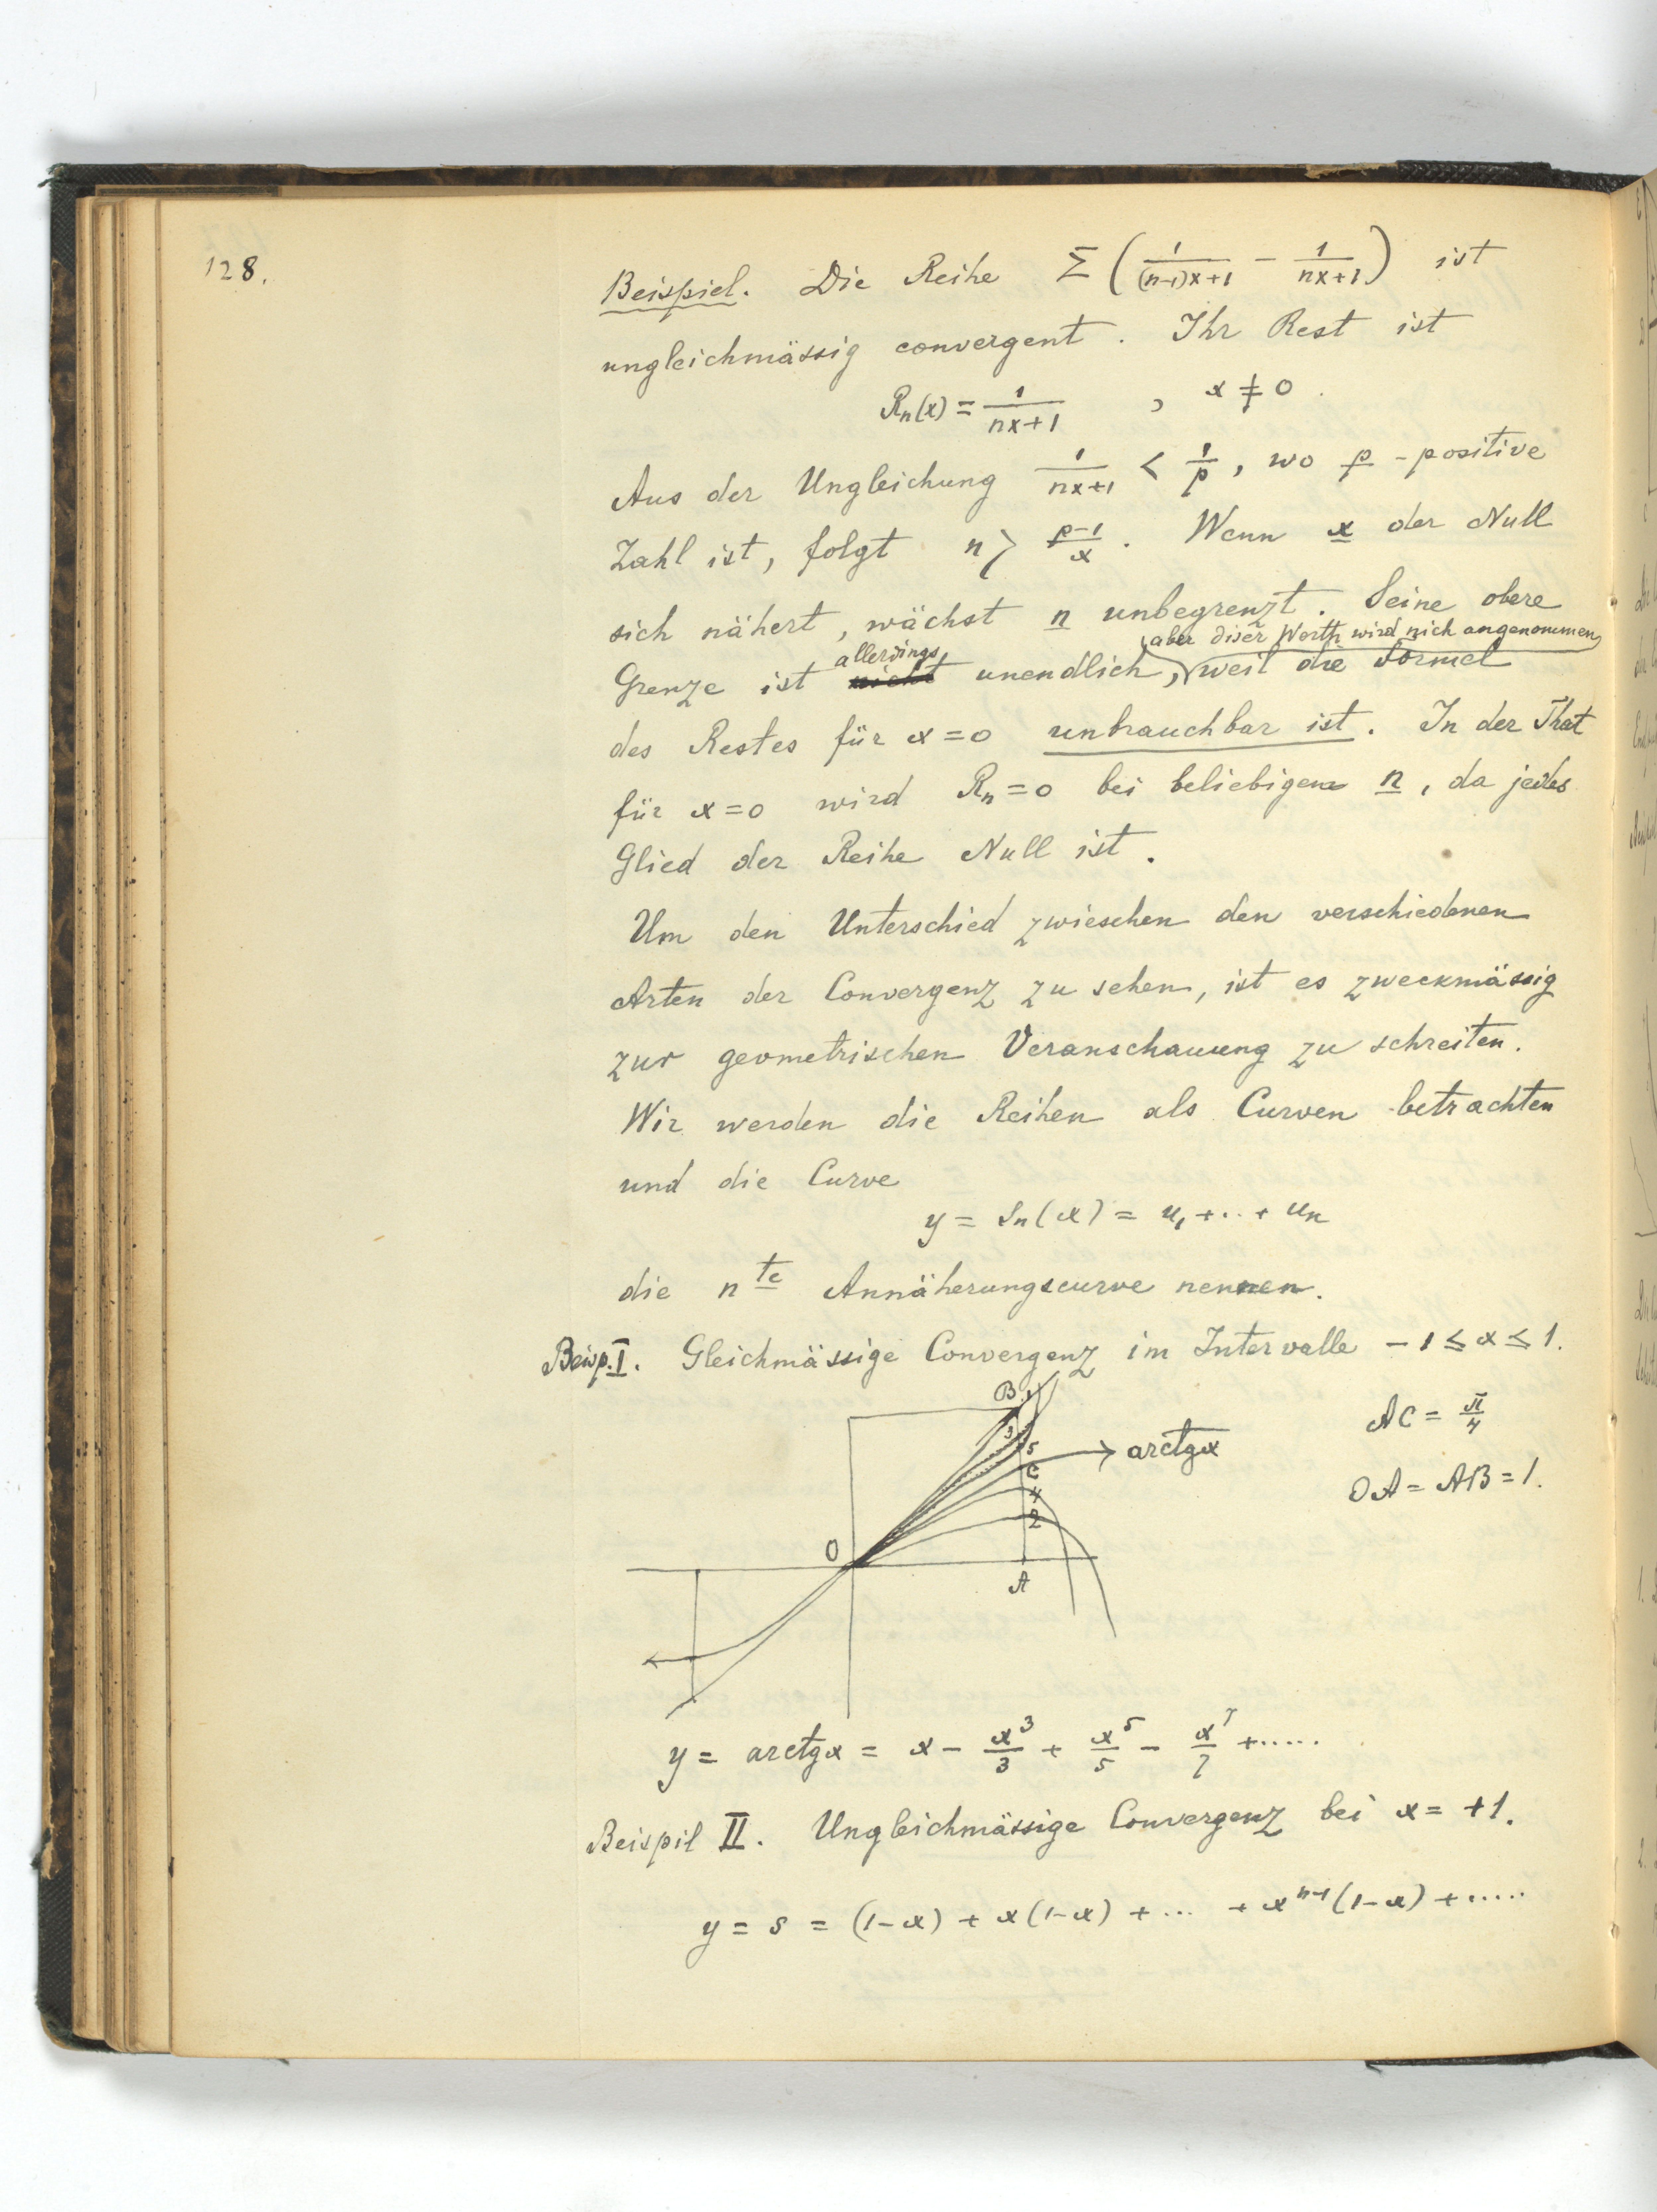 128.
Beispiel. Die Reihe Σ ( 1/((n-1)x+1) - 1/(nx+1) ) ist
ungleichmässig convergent. Ihr Rest ist
Rn(x) = 1/(nx+1) , x ≠ 0.
Aus der Ungleichung 1/(nx+1) < 1/p, wo p - positive
Zahl ist, folgt n > (p-1)/x. Wenn x der Null
sich nähert, wächst n unbegrenzt. Seine obere
Grenze ist allerdings unendlich, aber diser Werth wird nich angenommen, weil die Formel
des Restes für x=0 unbrauchbar ist. In der That
für x=0 wird Rn=0 bei beliebigem n, da jedes
Glied der Reihe Null ist.
Um den Unterschied zwieschen den verschiedenen
Arten der Convergenz zu sehen, ist es zweckmässig
zur geometrischen Veranschauung zu schreiten.
Wir werden die Reihen als Curven betrachten
und die Curve
y = Sn(x) = u1 + .. + un
die nte Annäherungscurve nennen.
Beisp. I. Gleichmässige Convergenz im Intervalle -1 ≤ x ≤ 1.
B 1
3
5
C
4
2
O
A
arctgx
AC = π/4
OA = AB = 1.
y = arctgx = x - x³/3 + x⁵/5 - x⁷/7 + .....
Beispil II. Ungleichmässige Convergenz bei x = +1.
y = s = (1-x) + x(1-x) + ... + xⁿ⁻¹(1-x) + .....